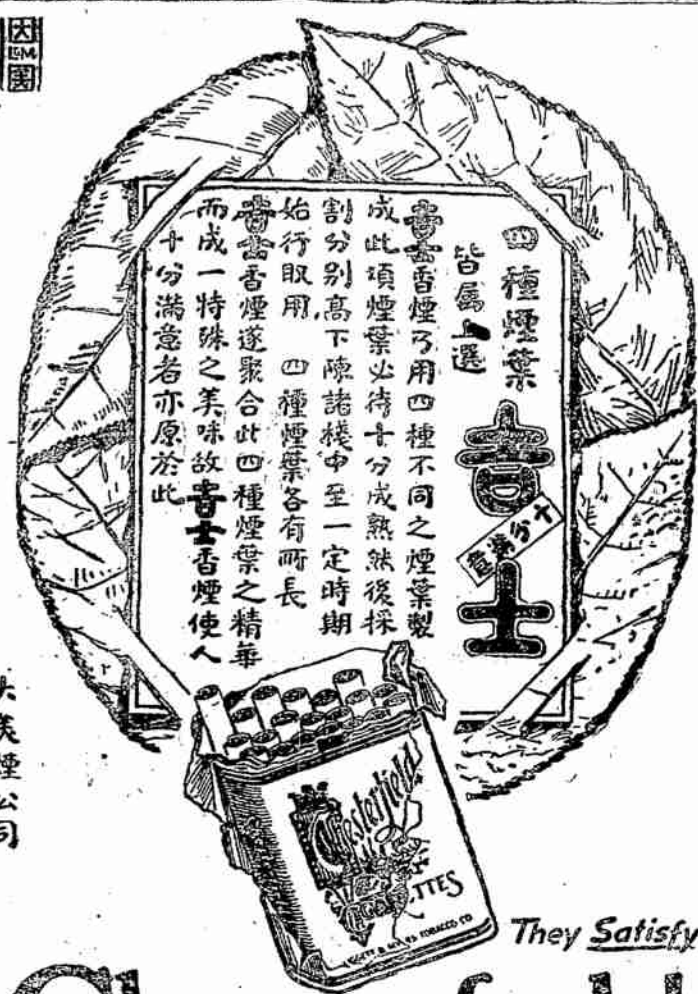 四種煙葉
皆属上選
吉士
十分滿意
吉士香煙乃用四種不同之煙葉製
成此項煙葉必待十分成熟然後採
割分別高下陳諸棧中至一定時期
始行取用 四種煙葉各有所長
吉士香煙遂聚合此四種煙葉之精華
而成一特殊之美味故吉士香煙使人
十分滿意者亦原於此
大美煙公司
大
L&M
美
Chesterfield
CIGARETTES
LIGGETT & MYERS TOBACCO CO
They Satisfy